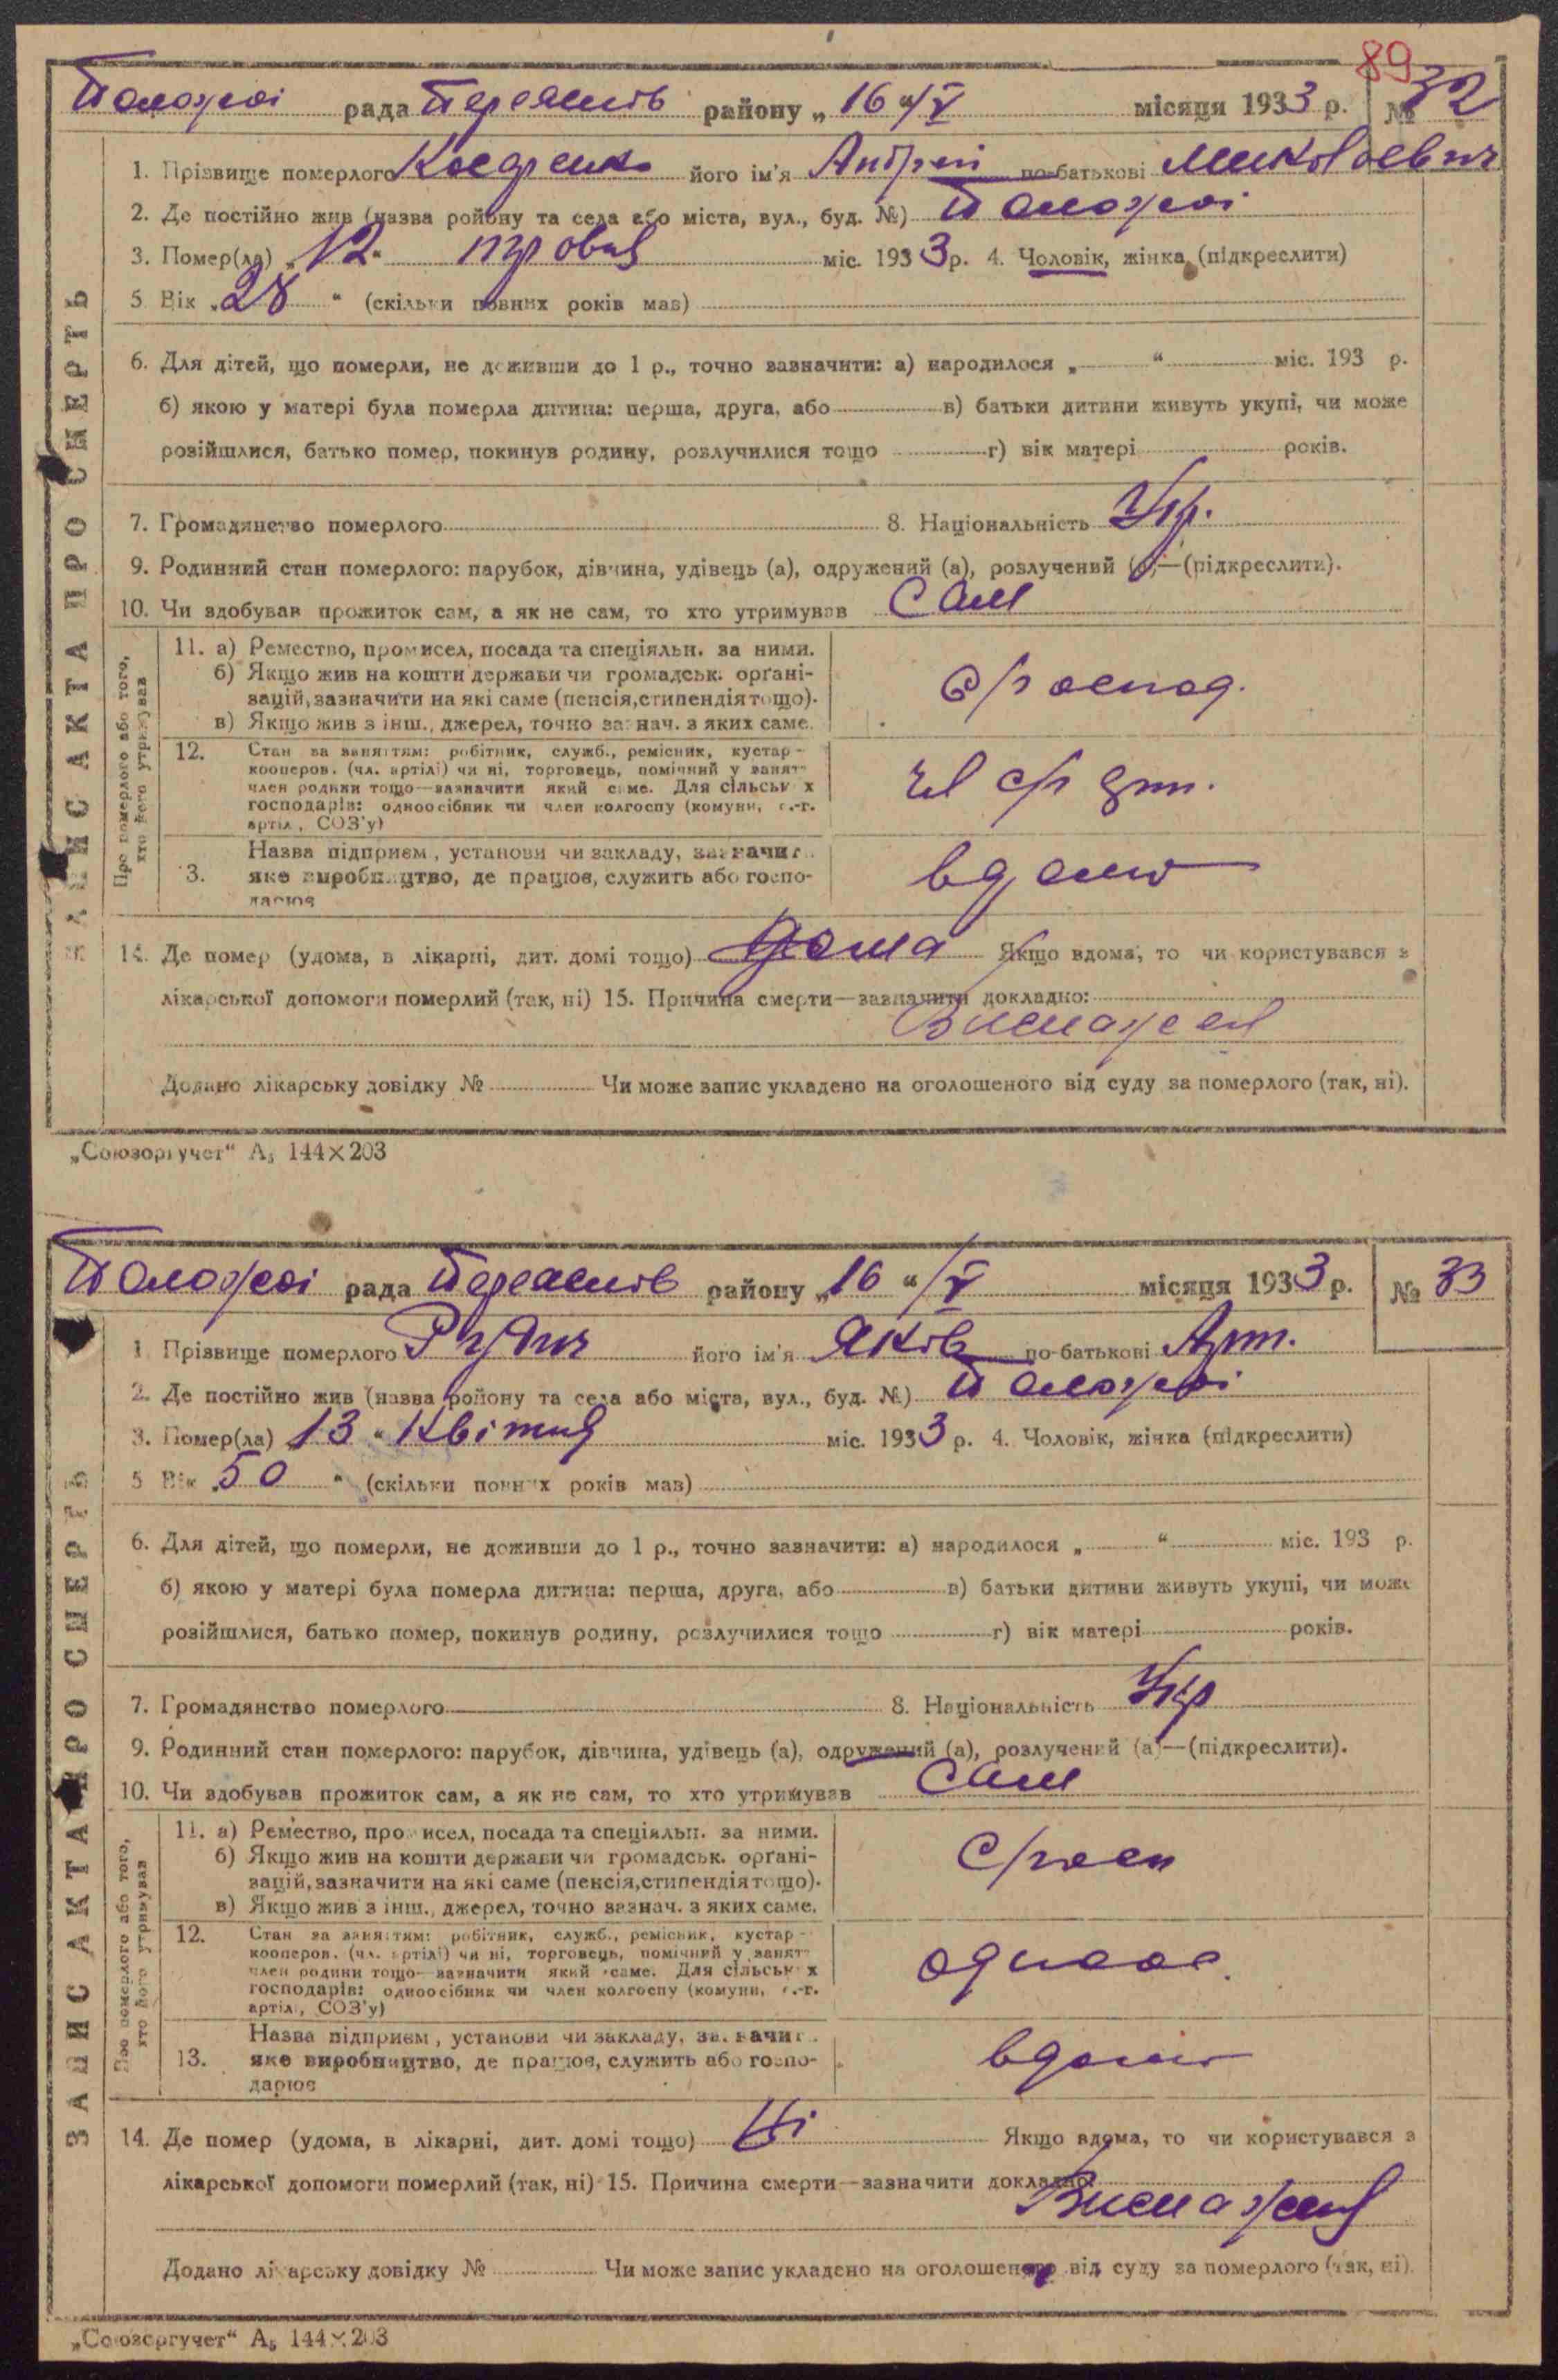 89
Положаї рада Переяслів району „16 “/V місяця 1933 р. № 32
1. Прізвище померлого його ім'я Андрій по-батькові Миколаєвич
2. Де постійно жив (назва ройону та села або міста, вул., буд. №)
3. Помер(ла) „12 “ міс. 1933 р. 4. Чоловік, жінка (підкреслити)
5 Вік „28 “ (скільки повних років мав)
6. Для дітей, що померли, не доживши до 1 р., точно зазначити: а) народилося „ “ міс. 193 р.
б) якою у матері була померла дитина: перша, друга, або в) батьки дитини живуть укупі, чи може
розійшлися, батько помер, покинув родину, розлучилися тощо г) вік матері років.
7. Громадянство померлого 8. Національність Укр.
9. Родинний стан померлого: парубок, дівчина, удівець (а), одружений (а), розлучений (а)—(підкреслити).
10. Чи здобував прожиток сам, а як не сам, то хто утримував Сам
ЗАПИС АКТА ПРО СМЕРТЬ
Про померлого або того, хто його утримував
11. а) Ремество, промисел, посада та спеціяльн. за ними.
б) Якщо жив на кошти держави чи громадськ. орґані-
зацій, зазначити на які саме (пенсія, стипендія тощо).
в) Якщо жив з інш., джерел, точно зазнач. з яких саме.
с/господ.
12. Стан за заняттям: робітник, служб., ремісник, кустар-
кооперов. (чл. артілі) чи ні, торговець, помічний у занят-
член родини тощо—зазначити який саме. Для сільських
господарів: одноосібник чи член колгоспу (комуни, с.-г.
артіл., СОЗ'у)
чл с/г арт.
Назва підприєм, установи чи закладу, зазначит.
13. яке виробництво, де працює, служить або госпо-
дарює
вдома
14. Де помер (удома, в лікарні, дит. домі тощо) дома Якщо вдома, то чи користувався з
лікарської допомоги померлий (так, ні) 15. Причина смерти—зазначити докладно:
Додано лікарську довідку № Чи може запис укладено на оголошеного від суду за померлого (так, ні).
„Союзоргучет“ А₅ 144×203
Положаї рада Переяслів району „16 “/V місяця 1933 р. № 33
1 Прізвище померлого його ім'я Яків по-батькові
2. Де постійно жив (назва ройону та села або міста, вул., буд. №)
3. Помер(ла) „13 “ Квітня міс. 1933 р. 4. Чоловік, жінка (підкреслити)
5 Вік „50 “ (скільки повних років мав)
6. Для дітей, що померли, не доживши до 1 р., точно зазначити: а) народилося „ “ міс. 193 р.
б) якою у матері була померла дитина: перша, друга, або в) батьки дитини живуть укупі, чи може
розійшлися, батько помер, покинув родину, розлучилися тощо г) вік матері років.
7. Громадянство померлого 8. Національність Укр
9. Родинний стан померлого: парубок, дівчина, удівець (а), одружений (а), розлучений (а)—(підкреслити).
10. Чи здобував прожиток сам, а як не сам, то хто утримував Сам
ЗАПИС АКТА ПРО СМЕРТЬ
Про померлого або того, хто його утримував
11. а) Ремество, промисел, посада та спеціяльн. за ними.
б) Якщо жив на кошти держави чи громадськ. орґані-
зацій, зазначити на які саме (пенсія, стипендія тощо).
в) Якщо жив з інш., джерел, точно зазнач. з яких саме.
12. Стан за заняттям: робітник, служб., ремісник, кустар-
кооперов. (чл. артілі) чи ні, торговець, помічний у занят-
член родини тощо—зазначити який саме. Для сільських
господарів: одноосібник чи член колгоспу (комуни, с.-г.
артіл., СОЗ'у)
одноос.
Назва підприєм, установи чи закладу, зазначит.
13. яке виробництво, де працює, служить або госпо-
дарює
вдома
14. Де помер (удома, в лікарні, дит. домі тощо) Ні Якщо вдома, то чи користувався з
лікарської допомоги померлий (так, ні) 15. Причина смерти—зазначити докладно:
Виснаження
Додано лікарську довідку № Чи може запис укладено на оголошеного від суду за померлого (так, ні).
„Союзоргучет“ А₅ 144×203